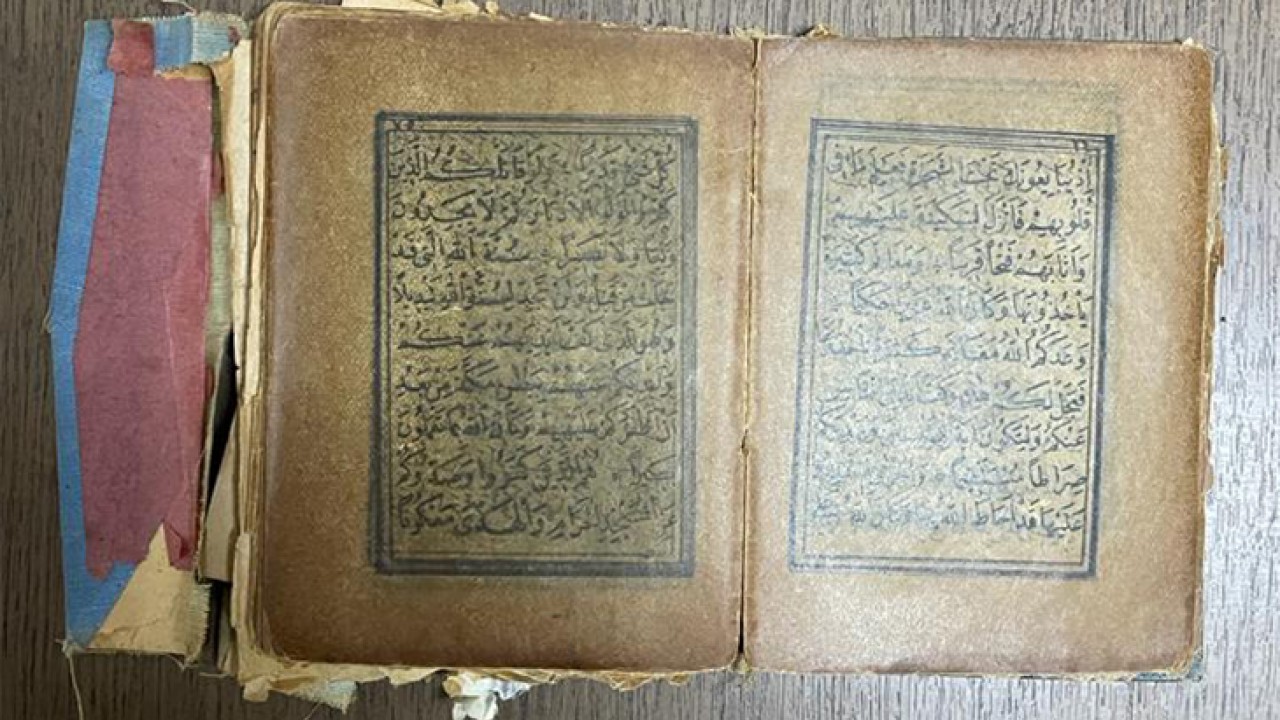 إذ يبايعونك تحت الشجرة فعلم ما في
قلوبهم فأنزل السكينة عليهم
وأثابهم فتحا قريبا ومغانم كثيرة
يأخذونها وكان الله عزيزا حكيما
وعدكم الله مغانم كثيرة
فعجل لكم هذه وكف أيدي الناس
عنكم ولتكون آية
صراطا مستقيما
عليها قد أحاط الله بها وكان الله على
كل شيء قديرا ولو قاتلكم الذين
كفروا لولوا الأدبار ثم لا يجدون
وليا ولا نصيرا سنة الله التي قد
خلت من قبل ولن تجد لسنة
وهو الذي كف أيديهم عنكم
وأيديكم عنهم ببطن مكة من بعد
أن أظفركم عليهم وكان الله بما تعملون
بصيرا هم الذين كفروا وصدوكم
عن المسجد الحرام والهدي معكوفا